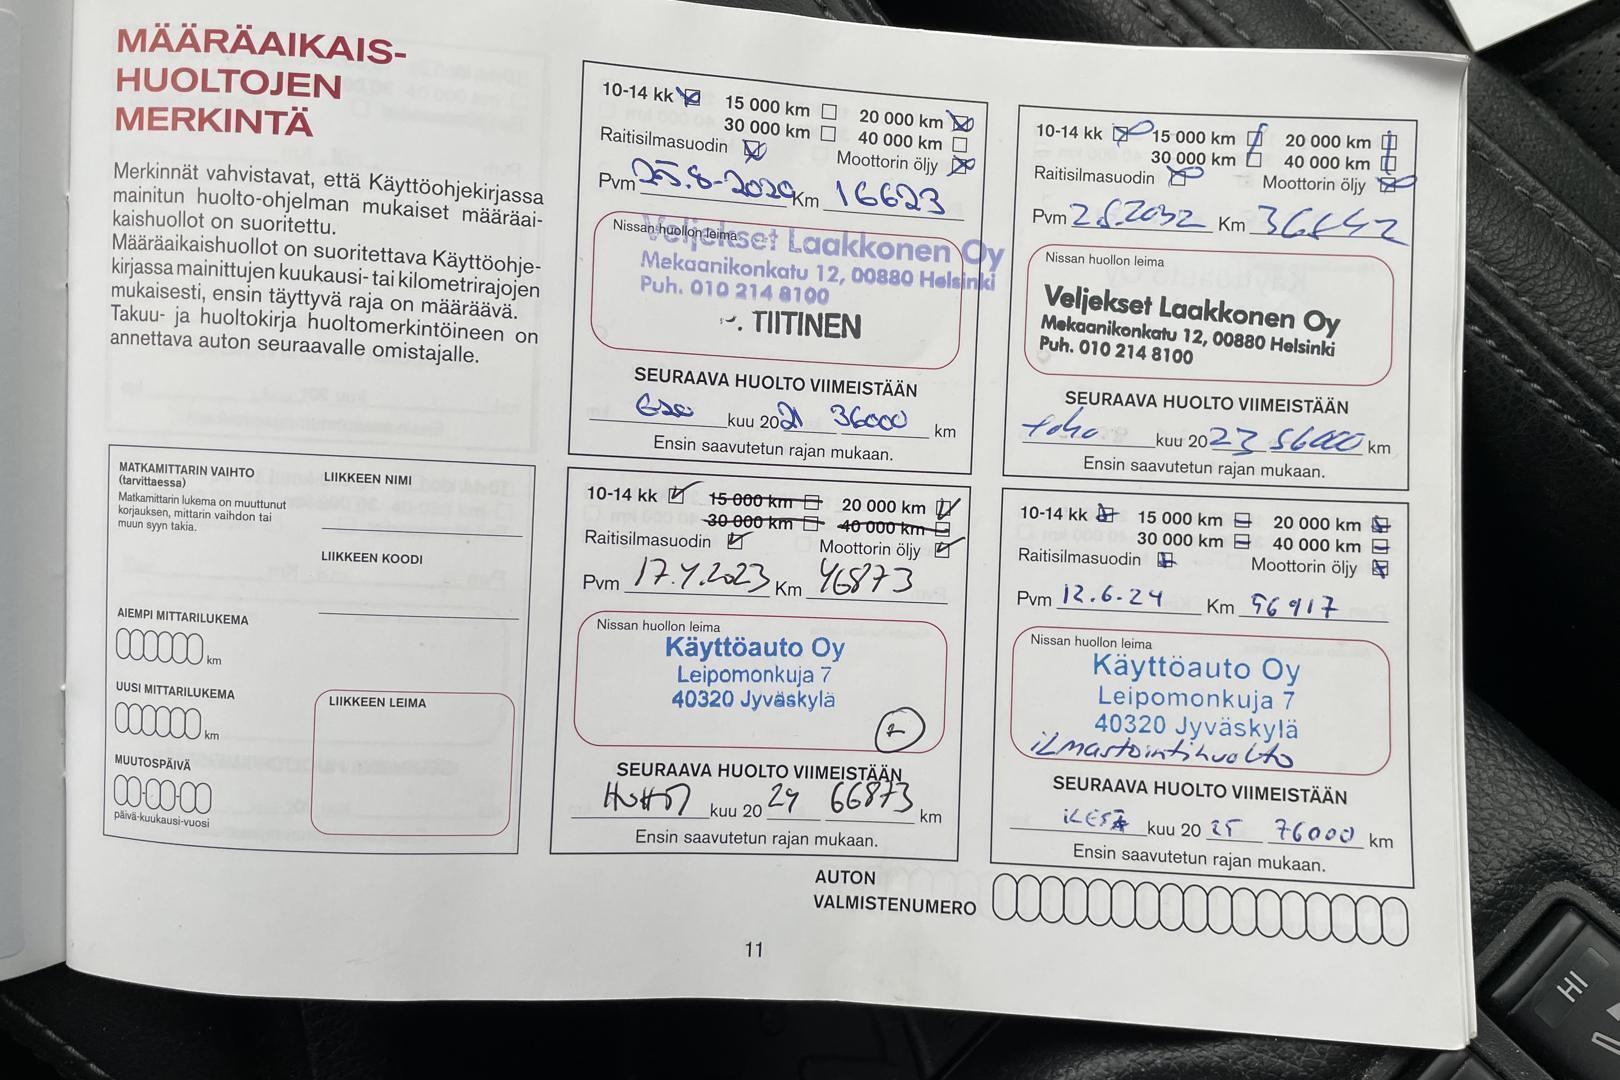 MÄÄRÄAIKAIS-
HUOLTOJEN
MERKINTÄ
Merkinnät vahvistavat, että Käyttöohjekirjassa
mainitun huolto-ohjelman mukaiset määräai-
kaishuollot on suoritettu.
Määräaikaishuollot on suoritettava Käyttöohje-
kirjassa mainittujen kuukausi- tai kilometrirajojen
mukaisesti, ensin täyttyvä raja on määräävä.
Takuu- ja huoltokirja huoltomerkintöineen on
annettava auton seuraavalle omistajalle.
MATKAMITTARIN VAIHTO
(tarvittaessa)
Matkamittarin lukema on muuttunut
korjauksen, mittarin vaihdon tai
muun syyn takia.
LIIKKEEN NIMI
LIIKKEEN KOODI
AIEMPI MITTARILUKEMA
km
UUSI MITTARILUKEMA
km
MUUTOSPÄIVÄ
päivä-kuukausi-vuosi
LIIKKEEN LEIMA
10-14 kk 15 000 km 20 000 km
30 000 km 40 000 km
Raitisilmasuodin Moottorin öljy
Pvm 25.8-2020 Km 16623
Nissan huollon leima
Veljekset Laakkonen Oy
Mekaanikonkatu 12, 00880 Helsinki
Puh. 010 214 8100
TIITINEN
SEURAAVA HUOLTO VIIMEISTÄÄN
kuu 2021 36000 km
Ensin saavutetun rajan mukaan.
10-14 kk 15 000 km 20 000 km
30 000 km 40 000 km
Raitisilmasuodin Moottorin öljy
Pvm Km
Nissan huollon leima
Veljekset Laakkonen Oy
Mekaanikonkatu 12, 00880 Helsinki
Puh. 010 214 8100
SEURAAVA HUOLTO VIIMEISTÄÄN
kuu 2023 56000 km
Ensin saavutetun rajan mukaan.
10-14 kk 15 000 km 20 000 km
30 000 km 40 000 km
Raitisilmasuodin Moottorin öljy
Pvm 17.4.2023 Km 46873
Nissan huollon leima
Käyttöauto Oy
Leipomonkuja 7
40320 Jyväskylä
SEURAAVA HUOLTO VIIMEISTÄÄN
Huhti kuu 20 24 66873 km
Ensin saavutetun rajan mukaan.
10-14 kk 15 000 km 20 000 km
30 000 km 40 000 km
Raitisilmasuodin Moottorin öljy
Pvm 12.6.24 Km 56917
Nissan huollon leima
Käyttöauto Oy
Leipomonkuja 7
40320 Jyväskylä
ilmastointihuolto
SEURAAVA HUOLTO VIIMEISTÄÄN
KESÄ kuu 20 25 76000 km
Ensin saavutetun rajan mukaan.
AUTON
VALMISTENUMERO
11
HI